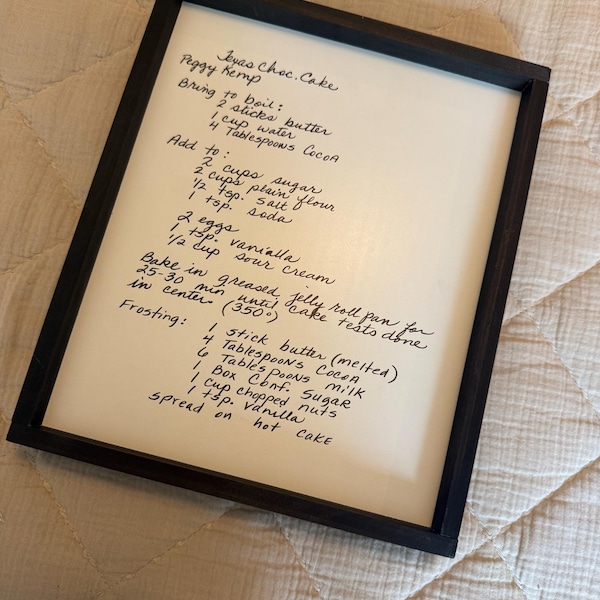 Texas Choc. Cake
Peggy Kemp
Bring to boil:
2 sticks butter
1 cup water
4 Tablespoons Cocoa
Add to:
2 cups sugar
2 cups plain flour
1/2 tsp. salt
1 tsp. soda
2 eggs
1 tsp. vanialla
1/2 cup sour cream
Bake in greased jelly roll pan for
25-30 min until cake tests done
in center (350°)
Frosting:
1 stick butter (melted)
4 Tablespoons Cocoa
6 Tablespoons milk
1 Box Conf. Sugar
1 cup chopped nuts
1 tsp. vanilla
Spread on hot cake